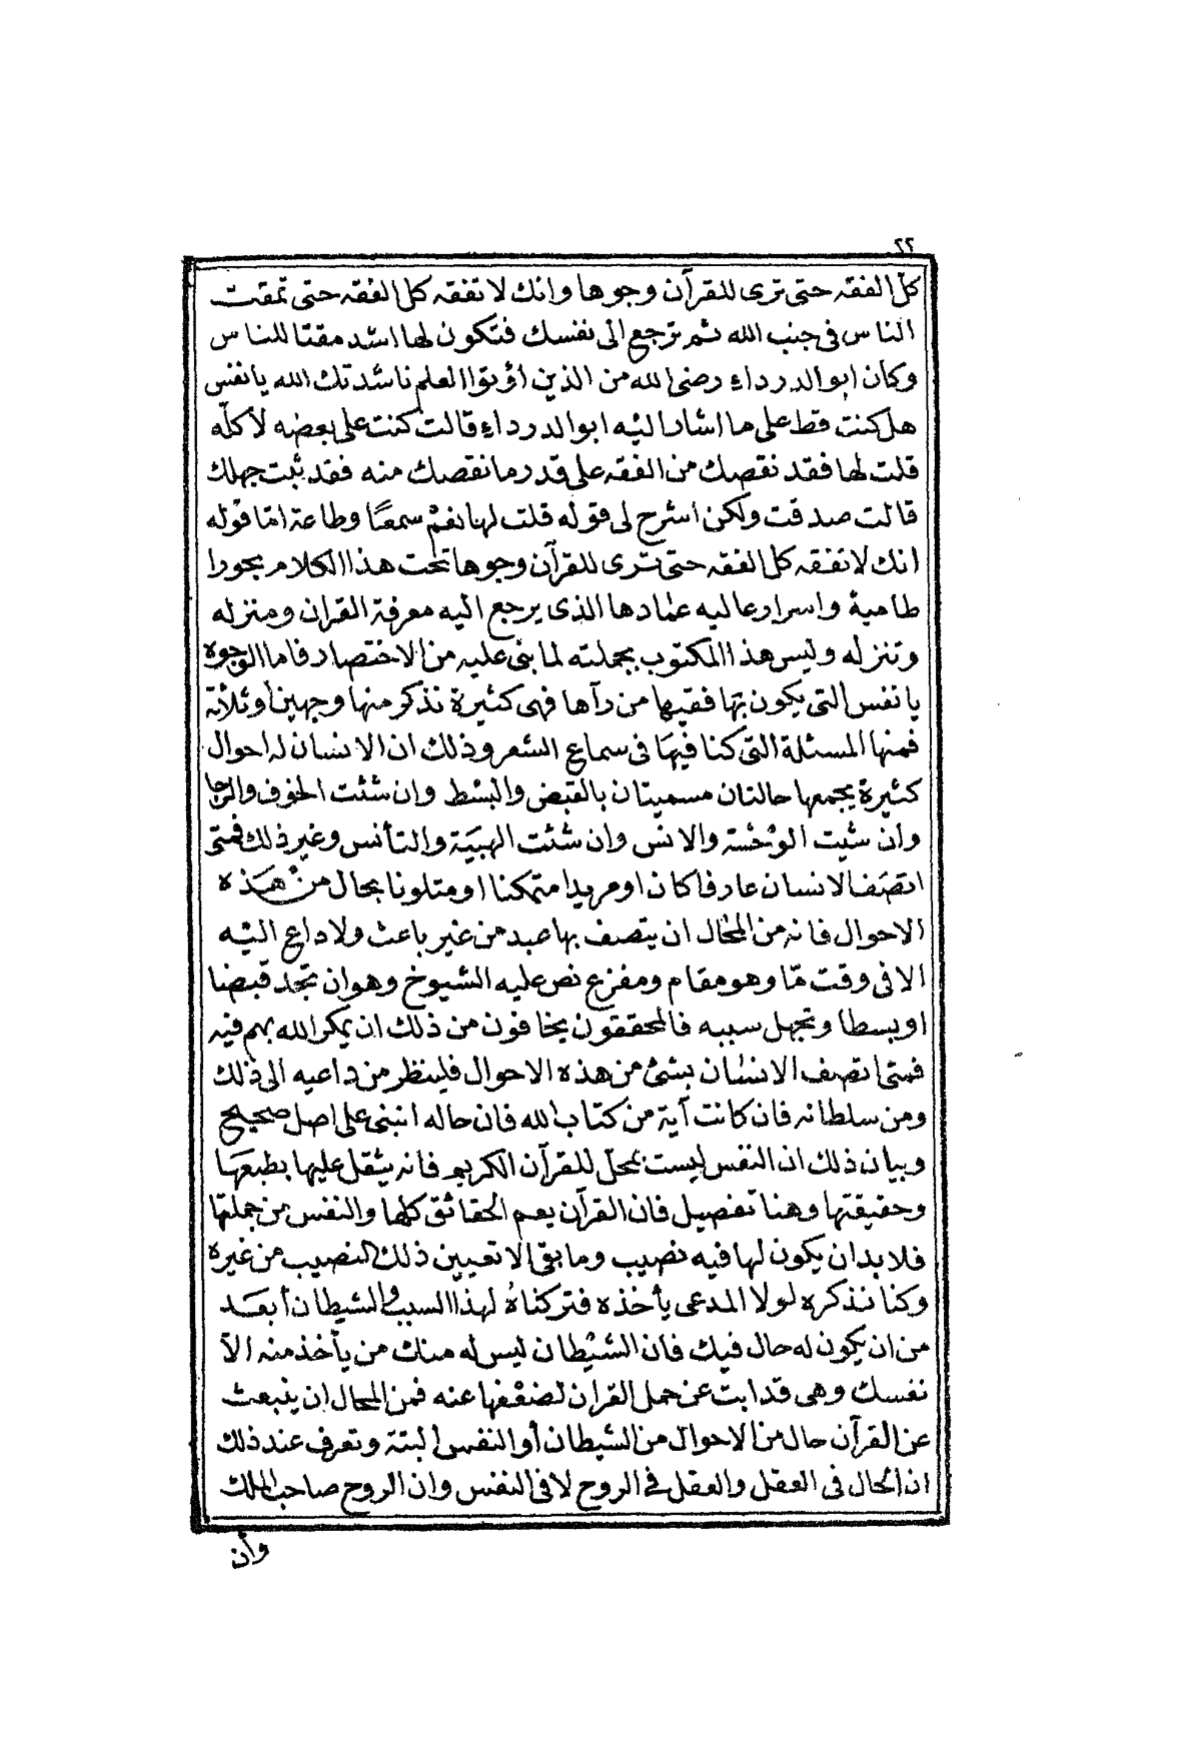 ٢٢
كل الفقه حتى ترى للقرآن وجوها وانك لا تفقه كل الفقه حتى تمقت
الناس فى جنب الله ثم ترجع الى نفسك فتكون لها اشد مقتا للناس
وكان ابو الدرداء رضى الله من الذين اؤتوا العلم ناشدتك الله يا نفس
هل كنت قط على ما اشار اليه ابو الدرداء قالت كنت على بعضه لا كلّه
قلت لها فقد نقصك من الفقه على قدر ما نقصك منه فقد ثبت جهلك
قالت صدقت ولكن اشرح لى قوله قلت لها نعم سمعًا وطاعة امّا قوله
انك لا تفقه كل الفقه حتى ترى للقرآن وجوها تحت هذا الكلام بحورا
طامية واسرار عاليه علمادها الذى يرجع اليه معرفة القران ومنزله
وتنزله وليس هذا المكتوب بجملته لما بنى عليه من الاختصار فاما الوجوه
يا نفس التى يكون بها فقيها من رآها فهى كثيرة نذكر منها وجهين او ثلاثة
فمنها المسئلة التى كنا فيها فى سماع الشعر وذلك ان الانسان له احوال
كثيرة يجمعها حالتان مسميتان بالقبض والبسط وان شئت الخوف والرجا
وان شيت الوحشة والانس وان شئت الهيبة والتأنس وغير ذلك فمتى
اتصف الانسان عارفا كان او مريدا متمكنا او متلونا بحال من هذه
الاحوال فانه من المحال ان يتصف بها عبد من غير باعث ولا داع اليه
الا فى وقت مّا وهو مقام ومفزع نص عليه الشيوخ وهو ان تجد قبضا
او بسطا وتجهل سببه فالمحققون يخافون من ذلك ان يمكر الله بهم فيه
فمتى اتصف الانسان بشئ من هذه الاحوال فلينظر من داعيه الى ذلك
ومن سلطانه فان كانت آية من كتاب الله فان حاله انبنى على اصل صحيح
وبيان ذلك ان النفس ليست بمحلّ للقرآن الكريم فانه يثقل عليها بطبعها
وحقيقتها وهنا تفصيل فان القرآن يعم الحقائق كلها والنفس من جملتها
فلا بد ان يكون لها فيه نصيب وما بقى الا تعيين ذلك النصيب من غيره
وكنا نذكره لولا المدعى يأخذه فتركناهُ لهذا السبب والشيطان أبعد
من ان يكون له حال فيك فان الشيطان ليس له منك من يأخذ منه الاّ
نفسك وهى قد ابت عن حمل القران لضعفها عنه فمن المحال ان ينبعث
عن القرآن حال من الاحوال من الشيطان أو النفس البتة وتعرف عند ذلك
ان الحال فى العقل والعقل فى الروح لا فى النفس وان الروح صاحب الملك
وان